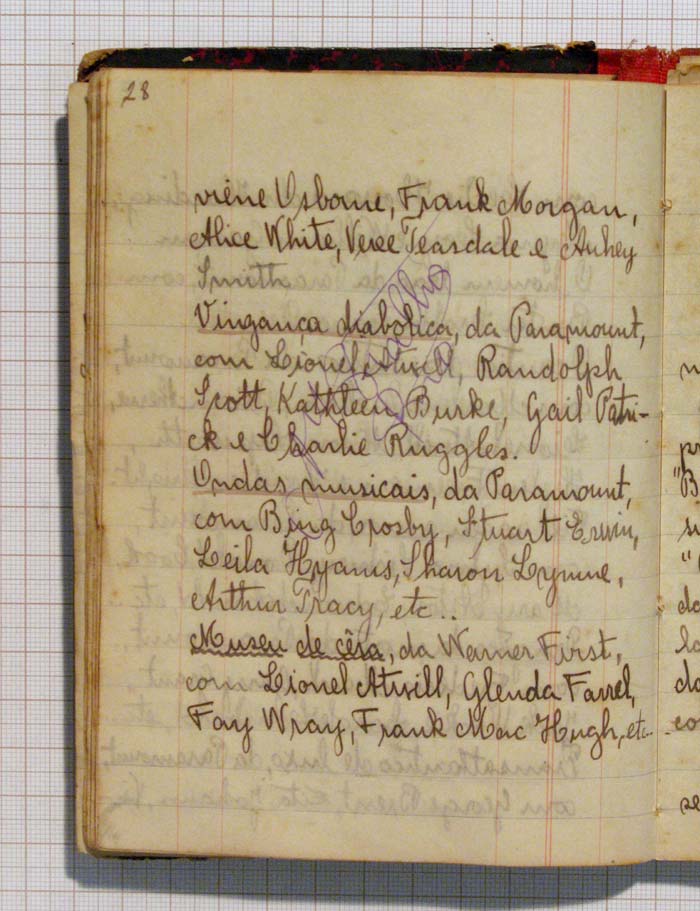 28
viène Osborne, Frank Morgan,
Alice White, Veree Teasdale e Auhey
Smith
Vingança diabolica, da Paramount,
com Lionel Atwill, Randolph
Scott, Kathleen Burke, Gail Patri-
ck e Charlie Ruggles.
Ondas musicais, da Paramount,
com Bing Crosby, Stuart Erwin,
Leila Hyams, Sharon Lynne,
Arthur Tracy, etc..
Museu de cêra, da Warner First,
com Lionel Atwill, Glenda Farrel,
Fay Wray, Frank Mac Hugh, etc..